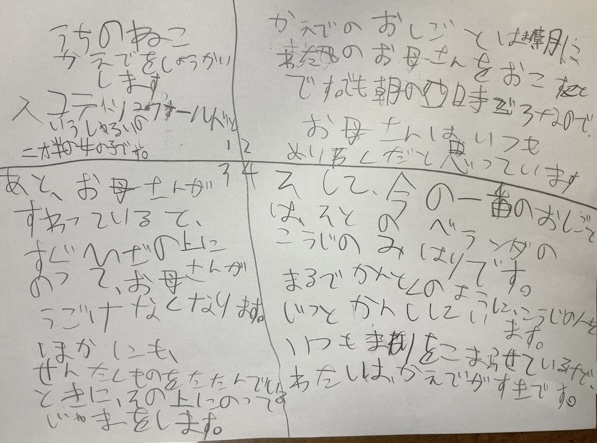 うちのねこ
かえでをしょうかい
します。
スコティッシュフォールドと
いうしゅるいの
二才半の女の子です。
1
かえでのおしごとは、朝に
わたしのお母さんをおこすこと
です。でも朝の4時ごろなので、
お母さんは、いつも
めいわくだと思っています
2
3
あと、お母さんが
すわっていると、
すぐひざの上に
のって、お母さんが
うごけなくなります。
ほかにも、
せんたくものをたたんでい
ときに、その上にのって
じゃまをします。
4
そして、今の一番のおしごと
は、そとのベランダの
こうじのみはりです。
まるでかんとくのように、こうじの人を
じっとかんししています。
いつもまわりをこまらせているけど、
わたしは、かえでがすきです。